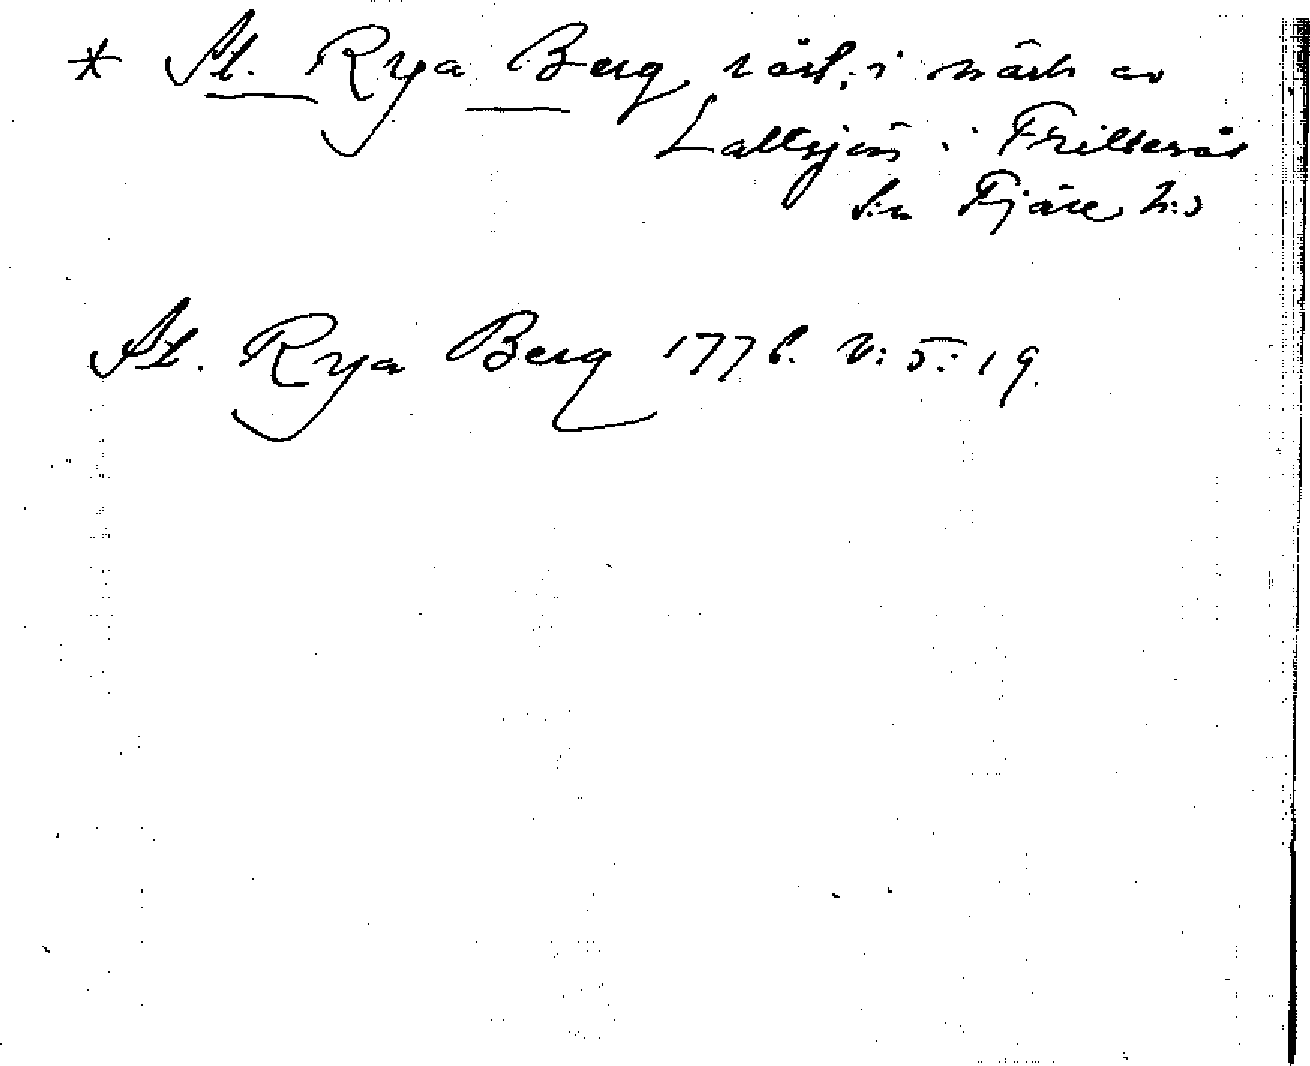 * St. Rya Berg, i närh av
Lallsjön i Frillesås
s:n Fjäre h:d
St. Rya Berg 1776. V: 5: 19.